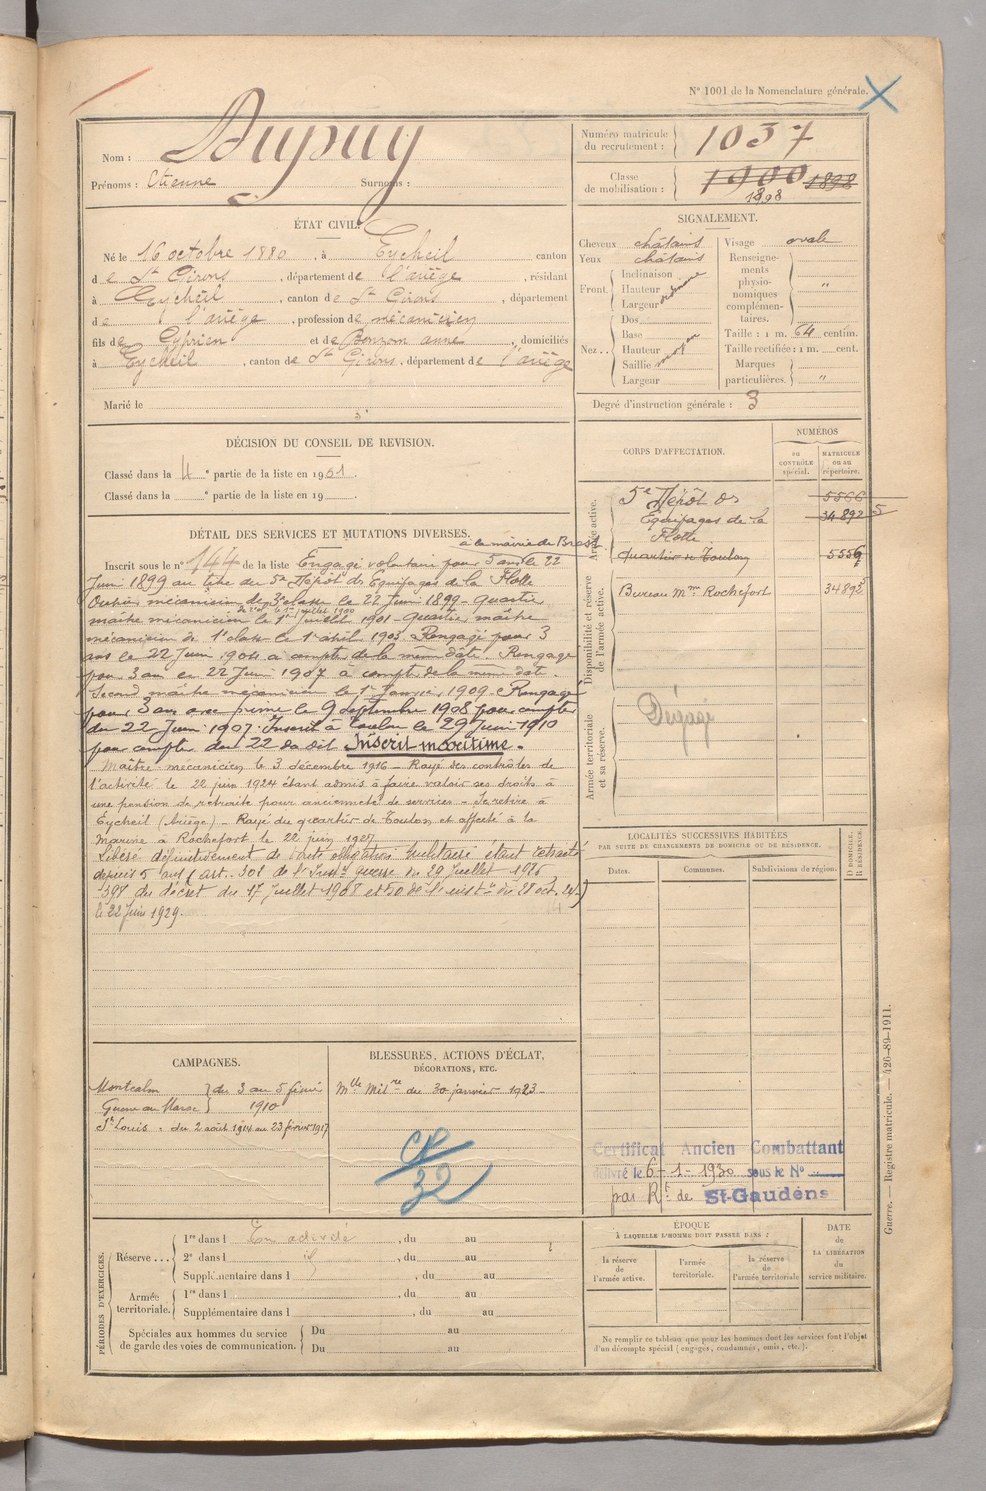 N° 1001 de la Nomenclature générale.
Nom : Dupuy
Prénoms : Etienne Surnoms :
Numéro matricule du recrutement : 1037
Classe de mobilisation : 1900 1898
1898
ÉTAT CIVIL.
Né le 16 octobre 1880, à Eycheil canton
de St Girons, département de l'ariège, résidant
à Eycheil, canton de St Girons, département
de l'ariège, profession de mécanicien
fils de Cyprien et de Bonzom anne, domiciliés
à Eycheil, canton de St Girons, département de l'ariège
Marié le
SIGNALEMENT.
Cheveux châtains
Yeux châtains
Front. Inclinaison
Hauteur
Largeur
ordinaire
Nez... Dos
Base
Hauteur
Saillie
Largeur
moyen
Visage ovale
Renseignements physionomiques complémentaires. "
Taille : 1 m. 64 centim.
Taille rectifiée : 1 m. cent.
Marques particulières. "
Degré d'instruction générale : 3
DÉCISION DU CONSEIL DE REVISION.
Classé dans la 4e partie de la liste en 1901.
Classé dans la e partie de la liste en 19 .
DÉTAIL DES SERVICES ET MUTATIONS DIVERSES.
à la mairie de Brest
Inscrit sous le n° 144 de la liste Engagé volontaire pour 5 ans le 22
Juin 1899 au titre du 5e Dépôt des Equipages de la Flotte
Ouvrier mécanicien de 3e classe le 22 Juin 1899 - Quartier
de 2e cl. le 1er juillet 1900
maître mécanicien le 1er juillet 1901 - Quartier maître
mécanicien de 1e classe le 1er avril 1903. Rengagé pour 3
ans le 22 Juin 1904 à compter de la même date. Rengagé
pour 3 ans le 22 Juin 1907 à compter de la même date.
Second maître mécanicien le 1er Janvier 1909. Rengagé
pour 3 ans avec prime le 9 septembre 1908 pour compter
du 22 Juin 1907. Inscrit à Toulon le 29 Juin 1910
pour compter du 22 du dit Inscrit maritime.
Maître mécanicien le 3 décembre 1916 - Rayé des contrôles de
l'activité le 22 juin 1924 étant admis à faire valoir ses droits à
une pension de retraite pour ancienneté de services - Se retire à
Eycheil (Ariège) - Rayé du quartier de Toulon et affecté à la
Marine à Rochefort le 22 juin 1927
Libéré définitivement de toute obligation militaire étant retraité
depuis 5 ans (art. 301 de l'Instn guerre du 29 Juillet 1926,
398 du décret du 17 Juillet 1908 et 50 de l'instn du 28 oct.
le 22 Juin 1929.
CORPS D'AFFECTATION.
NUMÉROS
au CONTRÔLE spécial.
MATRICULE ou au répertoire.
Armée active.
5e Dépôt des 5566
Equipages de la 34892 5
Flotte
Quartier de Toulon 5556
Disponibilité et réserve de l'armée active.
Bureau Mme Rochefort 34892
Armée territoriale et sa réserve.
Dégagé
LOCALITÉS SUCCESSIVES HABITÉES
PAR SUITE DE CHANGEMENTS DE DOMICILE OU DE RÉSIDENCE.
Dates. Communes. Subdivisions de région.
D DOMICILE. R RÉSIDENCE.
CAMPAGNES.
Montcalm } du 3 au 5 février
Guerre au Maroc } 1910
St Louis : du 2 août 1914 au 23 février 1917
BLESSURES, ACTIONS D'ÉCLAT,
DÉCORATIONS, ETC.
Mlle Milre du 30 janvier 1923
32
Certificat Ancien Combattant
délivré le 6-1-1930 sous le N°
par Rt de St-Gaudens
PÉRIODES D'EXERCICES.
Réserve... 1re dans l En activité, du au
2e dans l id, du au
Supplémentaire dans l, du au
Armée territoriale. 1re dans l, du au
Supplémentaire dans l, du au
Spéciales aux hommes du service de garde des voies de communication. Du au
Du au
ÉPOQUE
À LAQUELLE L'HOMME DOIT PASSER DANS :
la réserve de l'armée active.
l'armée territoriale.
la réserve de l'armée territoriale
DATE DE LA LIBÉRATION du service militaire.
Ne remplir ce tableau que pour les hommes dont les services font l'objet
d'un décompte spécial (engagés, condamnés, omis, etc.).
Guerre. — Registre matricule. — 426-89-1911.